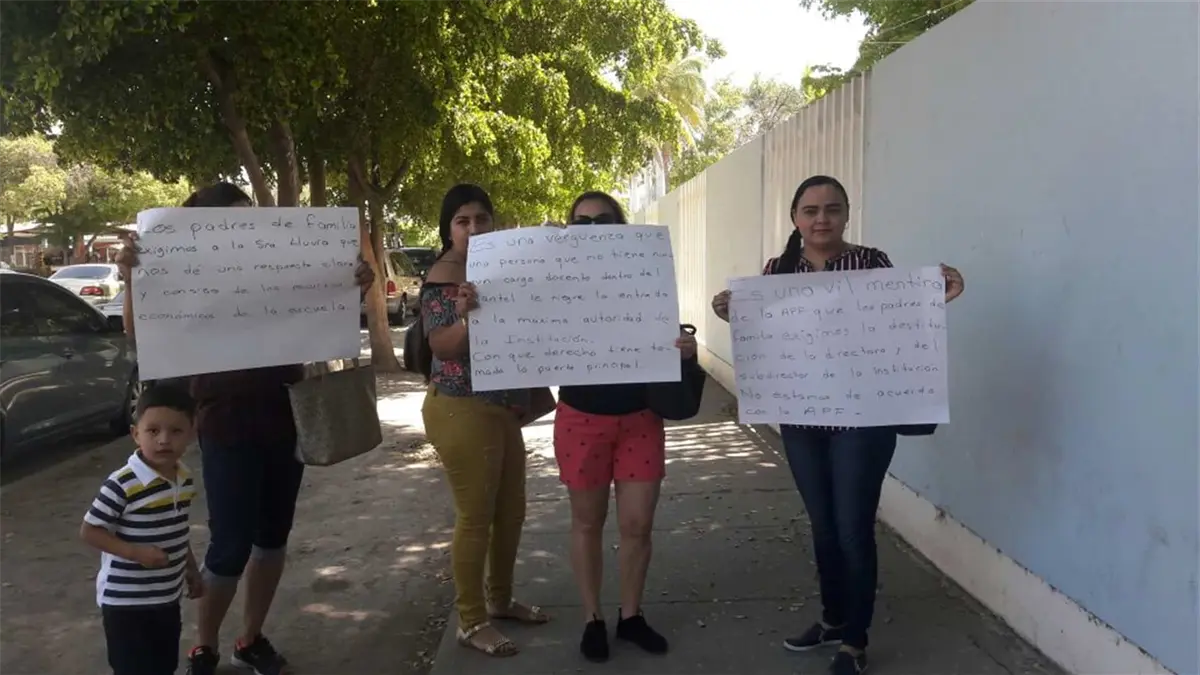 Los padres de familia
exigimos a la Sra. que
nos dé una respuesta clara
y concisa de los
económicos de la escuela.
Es una verguenza que
una persona que no tiene
un cargo docente dentro del
plantel le niegue la entrada
a la maxima autoridad de
la Institución.
Con que derecho tiene to-
mada la puerta principal.
Es una vil mentira
de la APF que los padres de
familia exigimos la destitu-
ción de la directora y del
subdirector de la Institución
No estamos de acuerdo
con la APF.